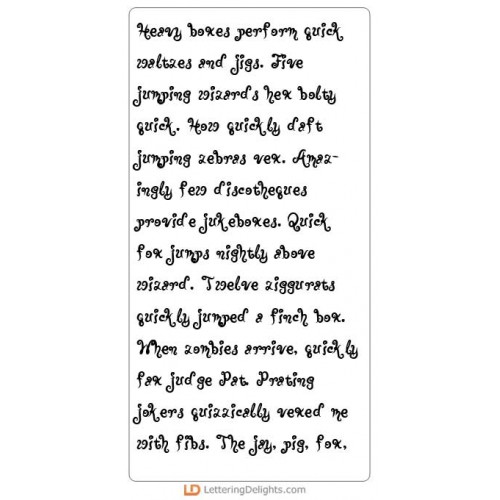 Heavy boxes perform quick
waltzes and jigs. Five
jumping wizards hex bolty
quick. How quickly daft
jumping zebras vex. Amaz-
ingly few discotheques
provide jukeboxes. Quick
fox jumps nightly above
wizard. Twelve ziggurats
quickly jumped a finch box.
When zombies arrive, quickly
fax judge Pat. Prating
jokers quizzically vexed me
with fibs. The jay, pig, fox,
LD LetteringDelights.com